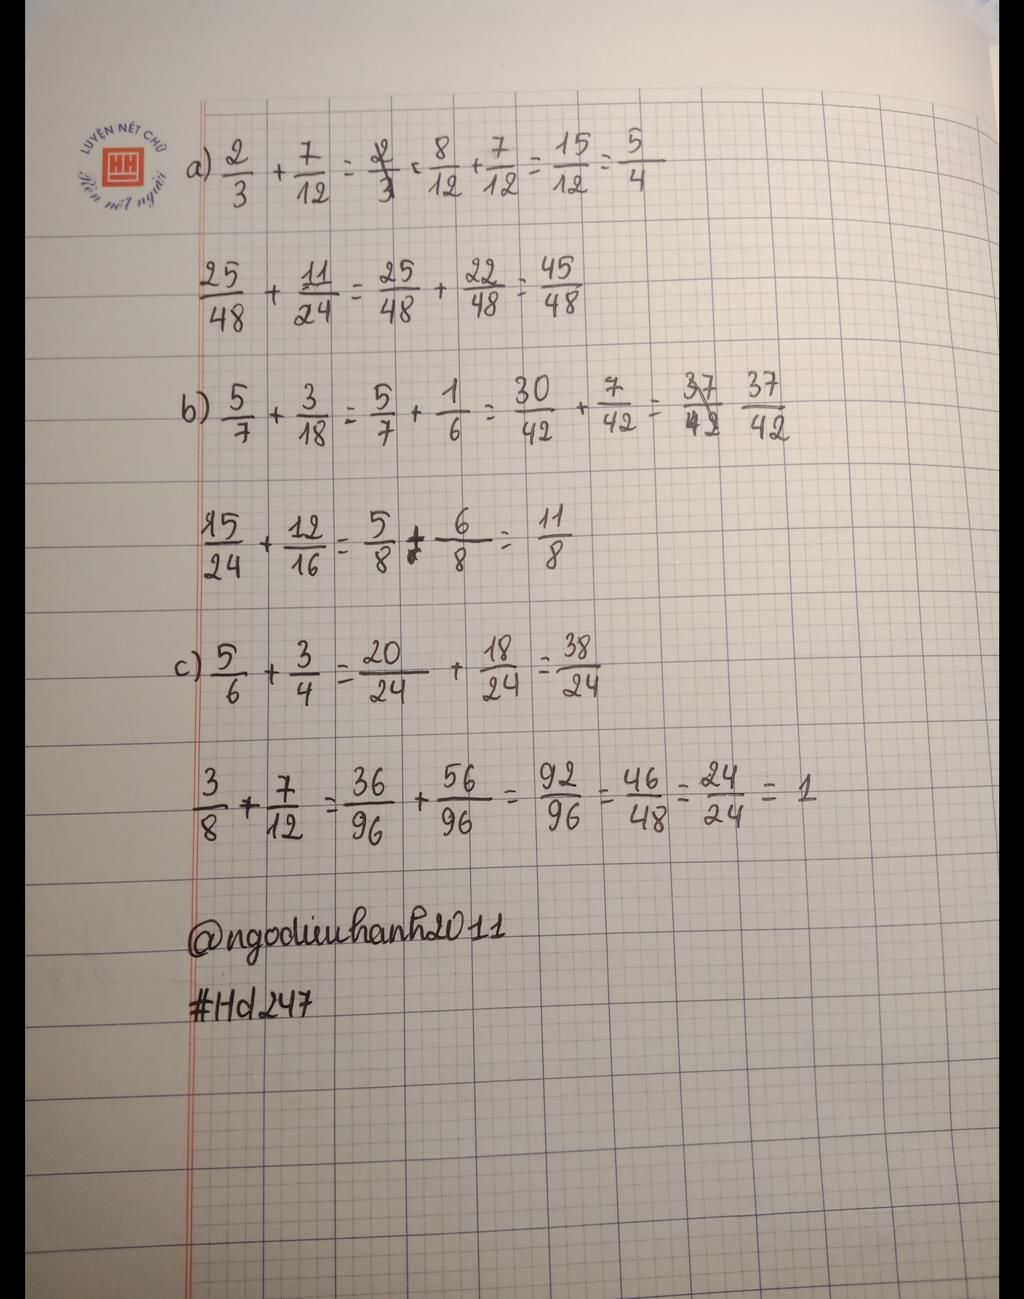 LUYỆN NÉT CHỮ
HH
Rèn nết người
a) 2/3 + 7/12 = 8/12 + 7/12 = 15/12 = 5/4
25/48 + 11/24 = 25/48 + 22/48 = 45/48
b) 5/7 + 3/18 = 5/7 + 1/6 = 30/42 + 7/42 = 37/42
15/24 + 12/16 = 5/8 + 6/8 = 11/8
c) 5/6 + 3/4 = 20/24 + 18/24 = 38/24
3/8 + 7/12 = 36/96 + 56/96 = 92/96 = 46/48 = 24/24 = 1
@ngodieuhanh2011
#Hd247